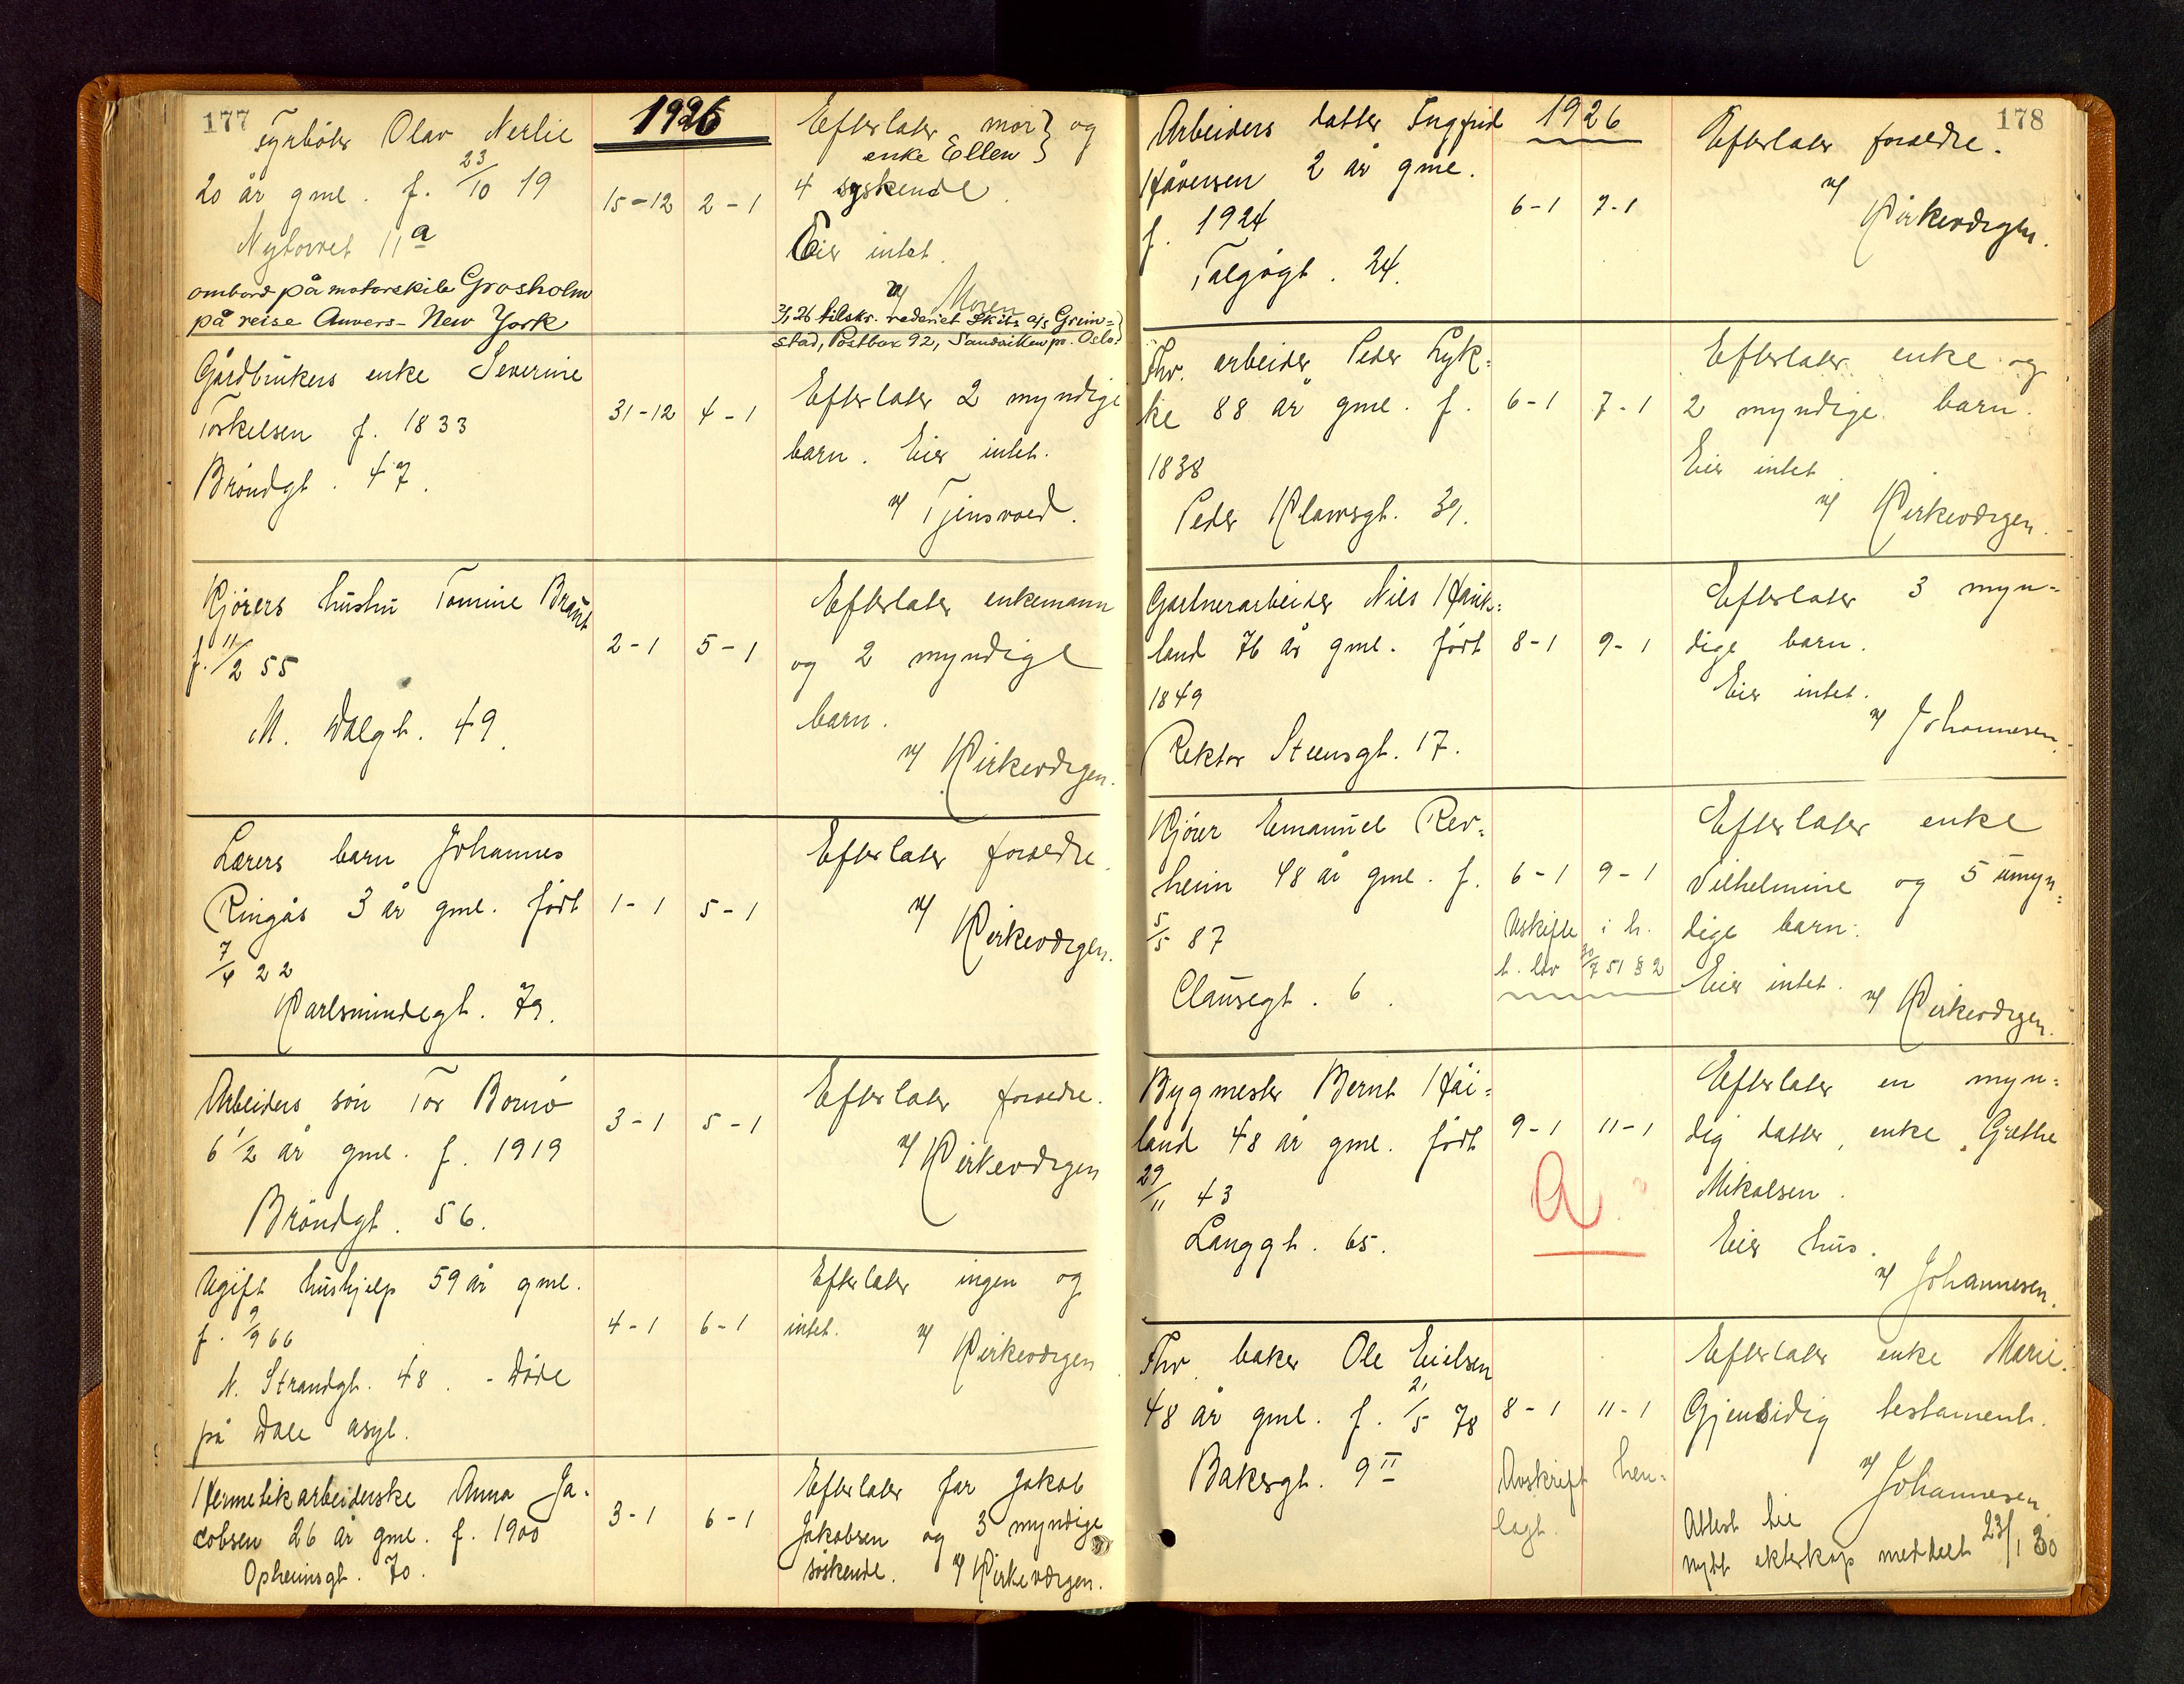 177
1926
Fyrbøter Olav Nerlie
20 år gml. f. 23/10 19
Nytorvet 11a
ombord på motorskib Grosholm
på reise Anvers - New York
15-12 2-1
Efterlater mor } og
enke Ellen }
4 syskende.
Eier intet.
v/ Moren
2/1 26 tilskr. rederiet Skibs a/s Grim=
stad, Postbox 92, Sandviken pr. Oslo.
Gårdbrukers enke Severine
Torkelsen f. 1833
Brøndgt. 47.
31-12 4-1
Efterlater 2 myndige
barn. Eier intet.
v/ Tjensvoed.
Kjørers hustru Tomine Braut
f. 11/2 55
N. Dalgt. 49.
2-1 5-1
Efterlater enkemann
og 2 myndige
barn.
v/ Kirkevergen.
Lærers barn Johannes
Ringås 3 år gml. født
7/4 22
Karlsmindegt. 79.
1-1 5-1
Efterlater foreldre.
v/ Kirkevergen.
Arbeiders søn Tor Bornø
6 1/2 år gml. f. 1919
Brøndgt. 56.
3-1 5-1
Efterlater foreldre.
v/ Kirkevergen
Ugift hushjelp 59 år gml.
f. 9/9 66
N. Strandgt. 48. - Døde
på Dale asyl.
4-1 6-1
Efterlater ingen og
intet. v/ Kirkevergen
Hermetikarbeiderske Anna Ja-
cobsen 26 år gml. f. 1900
Opheimsgt. 70.
3-1 6-1
Efterlater far Jakob
Jakobsen og 3 myndige
søskende. v/ Kirkevergen.
178
1926
Arbeiders datter Ingfrid
Håversen 2 år gml.
f. 1924
Talgøgt. 24.
6-1 7-1
Efterlater foreldre.
v/ Kirkevergen.
Fhv. arbeider Peder Lyk=
ke 88 år gml. f.
1838
Peder Klowsgt. 39.
6-1 7-1
Efterlater enke og
2 myndige barn.
Eier intet.
v/ Kirkevergen.
Gartnerarbeider Nils Hauk=
land 76 år gml. født
1849
Rektor Steensgt. 17.
8-1 9-1
Efterlater 3 myn=
dige barn.
Eier intet.
v/ Johannesen.
Kjører Emanuel Rev=
heim 48 år gml. f.
5/5 87
Clausegt. 6.
6-1 9-1
Uskifte i h.
t. lov 30/7 51 § 2
Efterlater enke
Vilhelmine og 5 umyn=
dige barn.
Eier intet. v/ Kirkevergen.
Bygmester Bernt Håi=
land 48 år gml. født
29/11 43
Langgt. 65.
9-1 11-1
a
Efterlater en myn=
dig datter, enke Grethe
Mikalsen.
Eier hus.
v/ Johannesen.
Fhv. baker Ole Eielsen
48 år gml. f. 21/5 78
Bakergt. 9 II
8-1 11-1
Avskrift hen=
lagt.
Efterlater enke Marie.
Gjensidig testament.
v/ Johannesen.
Attest til
nytt ekteskap meddelt 23/1 30